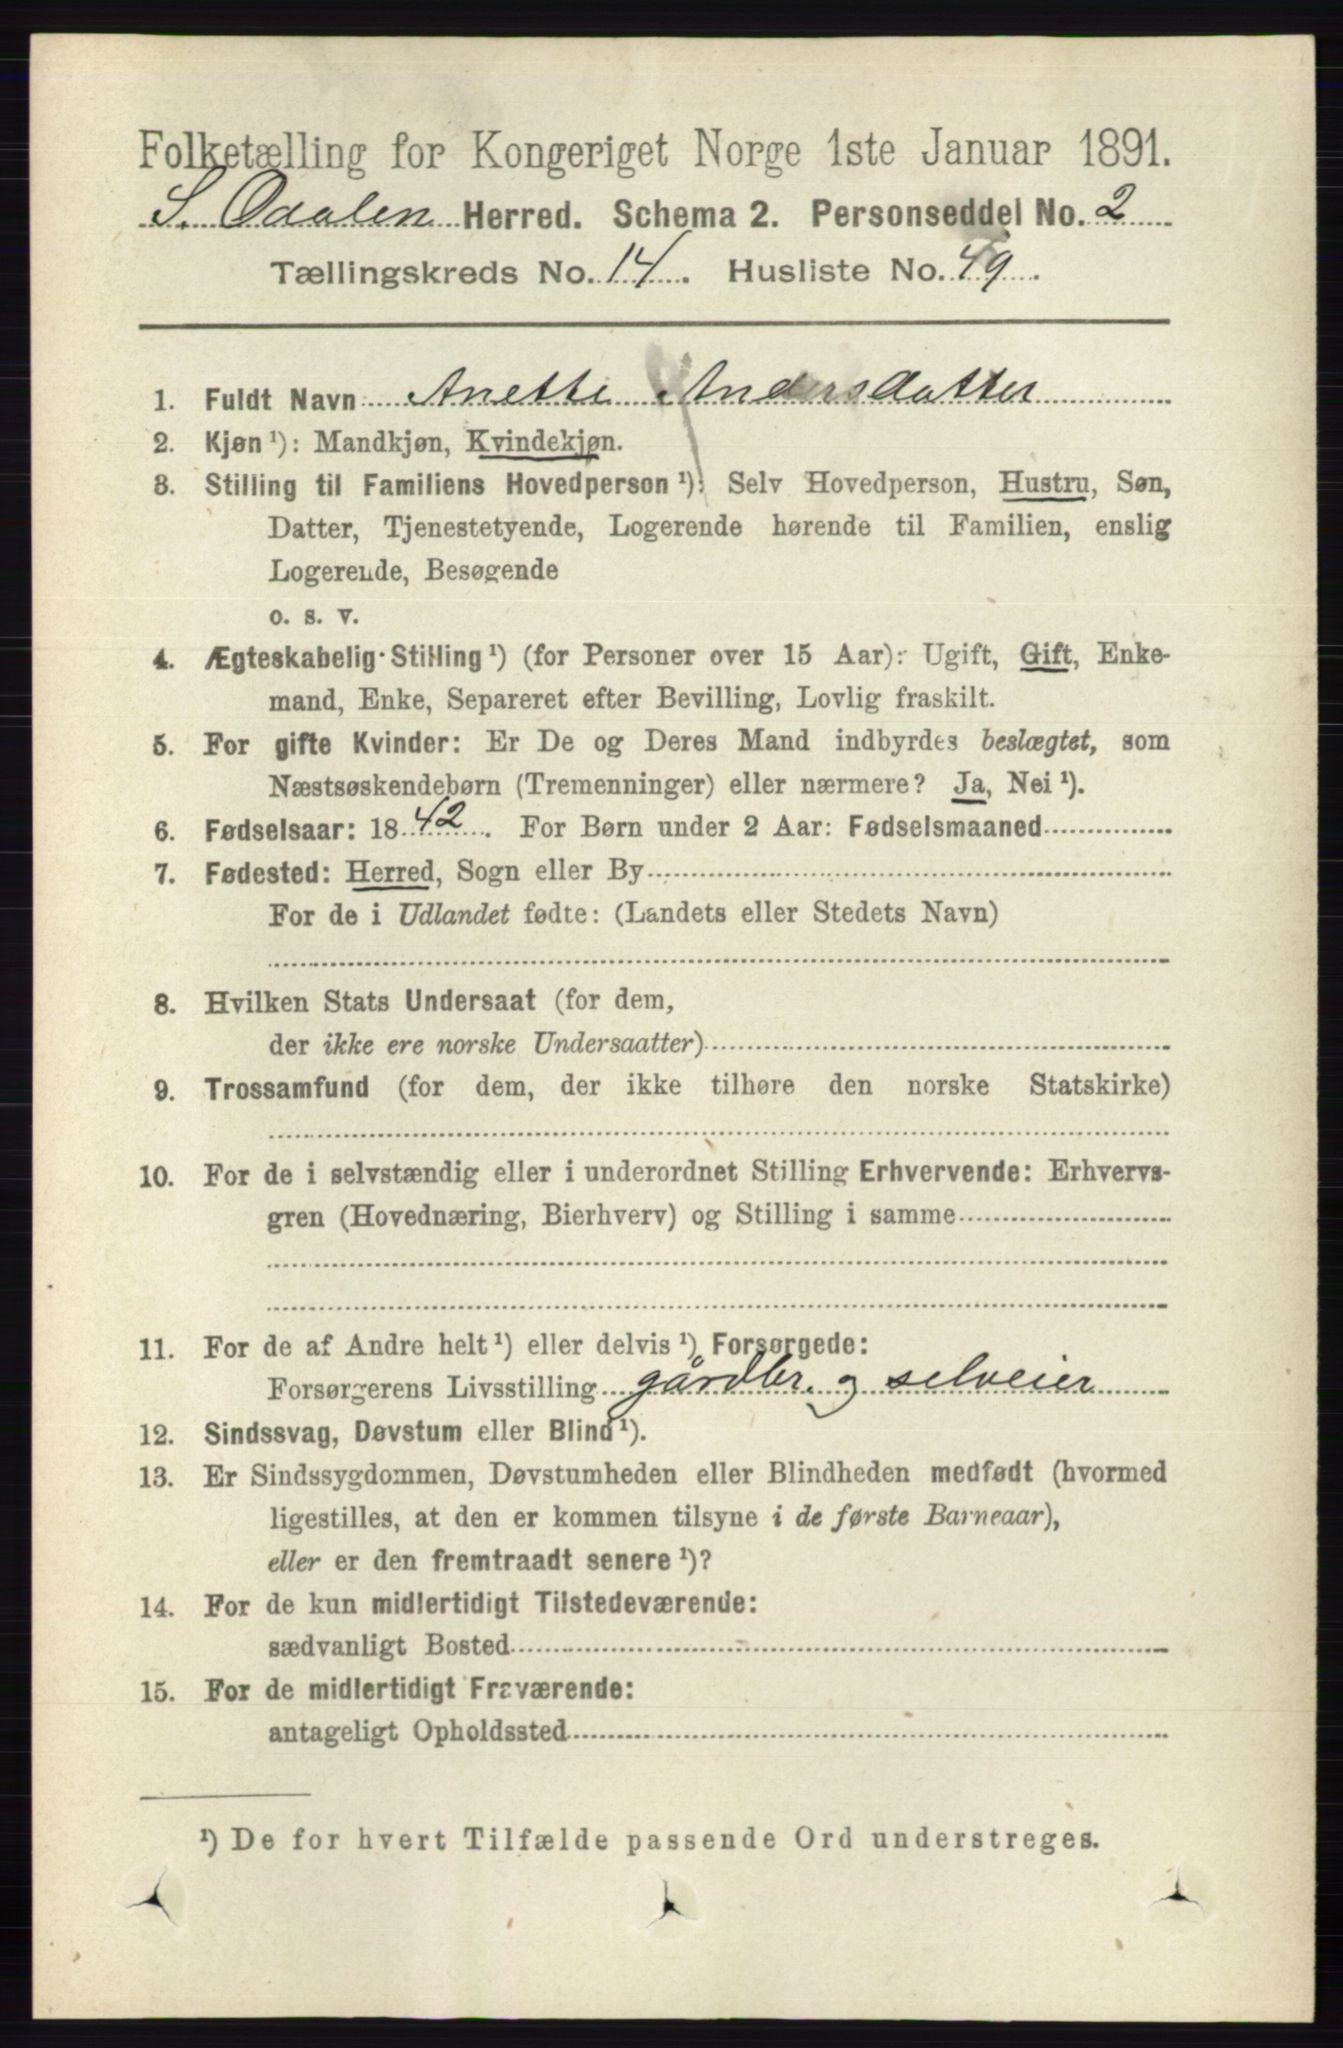 Folketælling for Kongeriget Norge 1ste Januar 1891.
S. Odalen Herred. Schema 2. Personseddel No. 2
Tællingskreds No. 14. Husliste No. 49.
1. Fuldt Navn Anette Andersdatter
2. Kjøn ¹): Mandkjøn, Kvindekjøn.
3. Stilling til Familiens Hovedperson ¹): Selv Hovedperson, Hustru, Søn,
Datter, Tjenestetyende, Logerende hørende til Familien, enslig
Logerende, Besøgende
o. s. v.
4. Ægteskabelig Stilling ¹) (for Personer over 15 Aar): Ugift, Gift, Enke-
mand, Enke, Separeret efter Bevilling, Lovlig fraskilt.
5. For gifte Kvinder: Er De og Deres Mand indbyrdes beslægtet, som
Næstsøskendebørn (Tremenninger) eller nærmere? Ja, Nei ¹).
6. Fødselsaar: 1842. For Børn under 2 Aar: Fødselsmaaned
7. Fødested: Herred, Sogn eller By
For de i Udlandet fødte: (Landets eller Stedets Navn)
8. Hvilken Stats Undersaat (for dem,
der ikke ere norske Undersaatter)
9. Trossamfund (for dem, der ikke tilhøre den norske Statskirke)
10. For de i selvstændig eller i underordnet Stilling Erhvervende: Erhvervs-
gren (Hovednæring, Bierhverv) og Stilling i samme
11. For de af Andre helt ¹) eller delvis ¹) Forsørgede:
Forsørgerens Livsstilling gårdbr. og selveier
12. Sindssvag, Døvstum eller Blind ¹).
13. Er Sindssygdommen, Døvstumheden eller Blindheden medfødt (hvormed
ligestilles, at den er kommen tilsyne i de første Barneaar),
eller er den fremtraadt senere ¹)?
14. For de kun midlertidigt Tilstedeværende:
sædvanligt Bosted
15. For de midlertidigt Fraværende:
antageligt Opholdssted
¹) De for hvert Tilfælde passende Ord understreges.